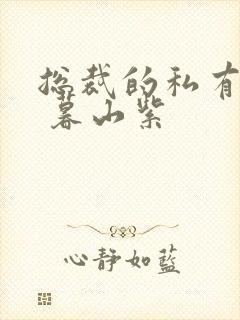 总裁的私有
暮山紫
心静如蓝